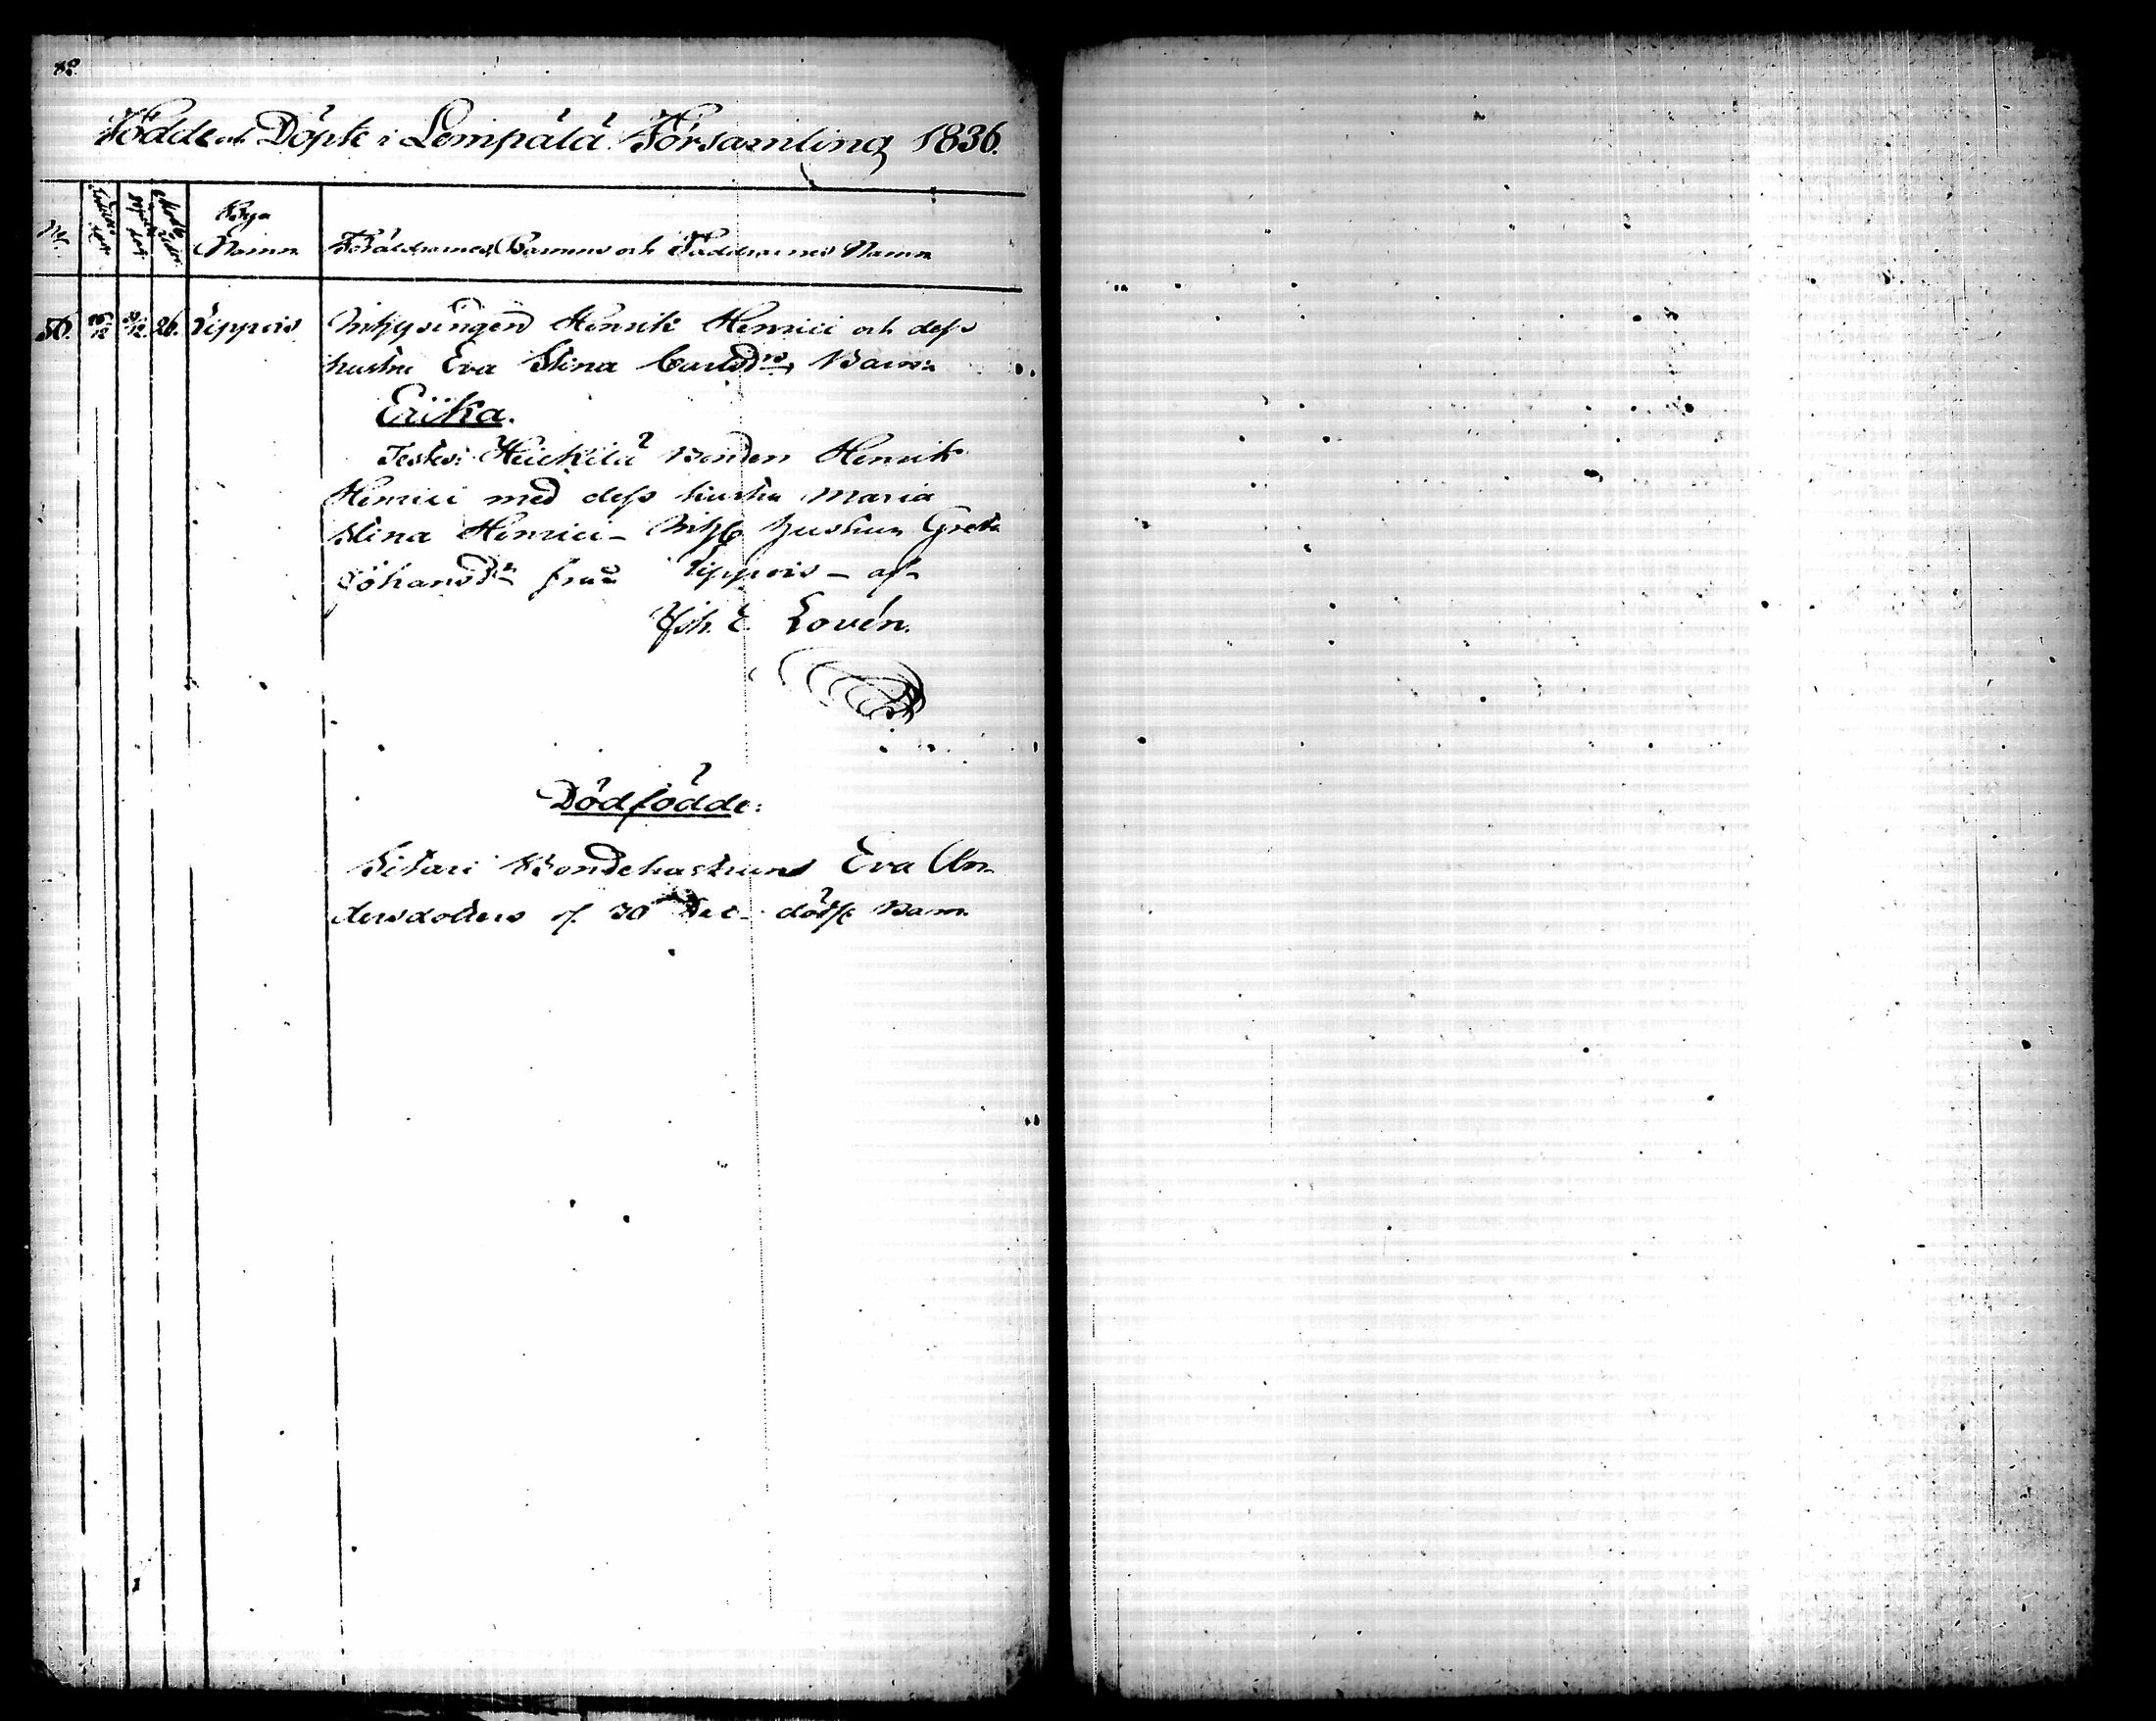 Födde och Döpte i Lempälä Församling 1836.
No.
Bya
Namn
Föräldrarnes, Barnens och Faddrarnes Namn
50. 26/12 31/12 26. Lippois Inhysingen Henrik Henrici och dess
hustru Eva Stina Carlsdr Barn
Erika.
Testes: Heickilä Bonden Henrik
Henrici med dess hustru Maria
Stina Henrici – Inhs hustrun Greta
Johansdr från Lippois – af
Joh. E. Lovén.
Dödfödde:
Bondehustruns Eva An-
dersdotters 30 Dec. Barn